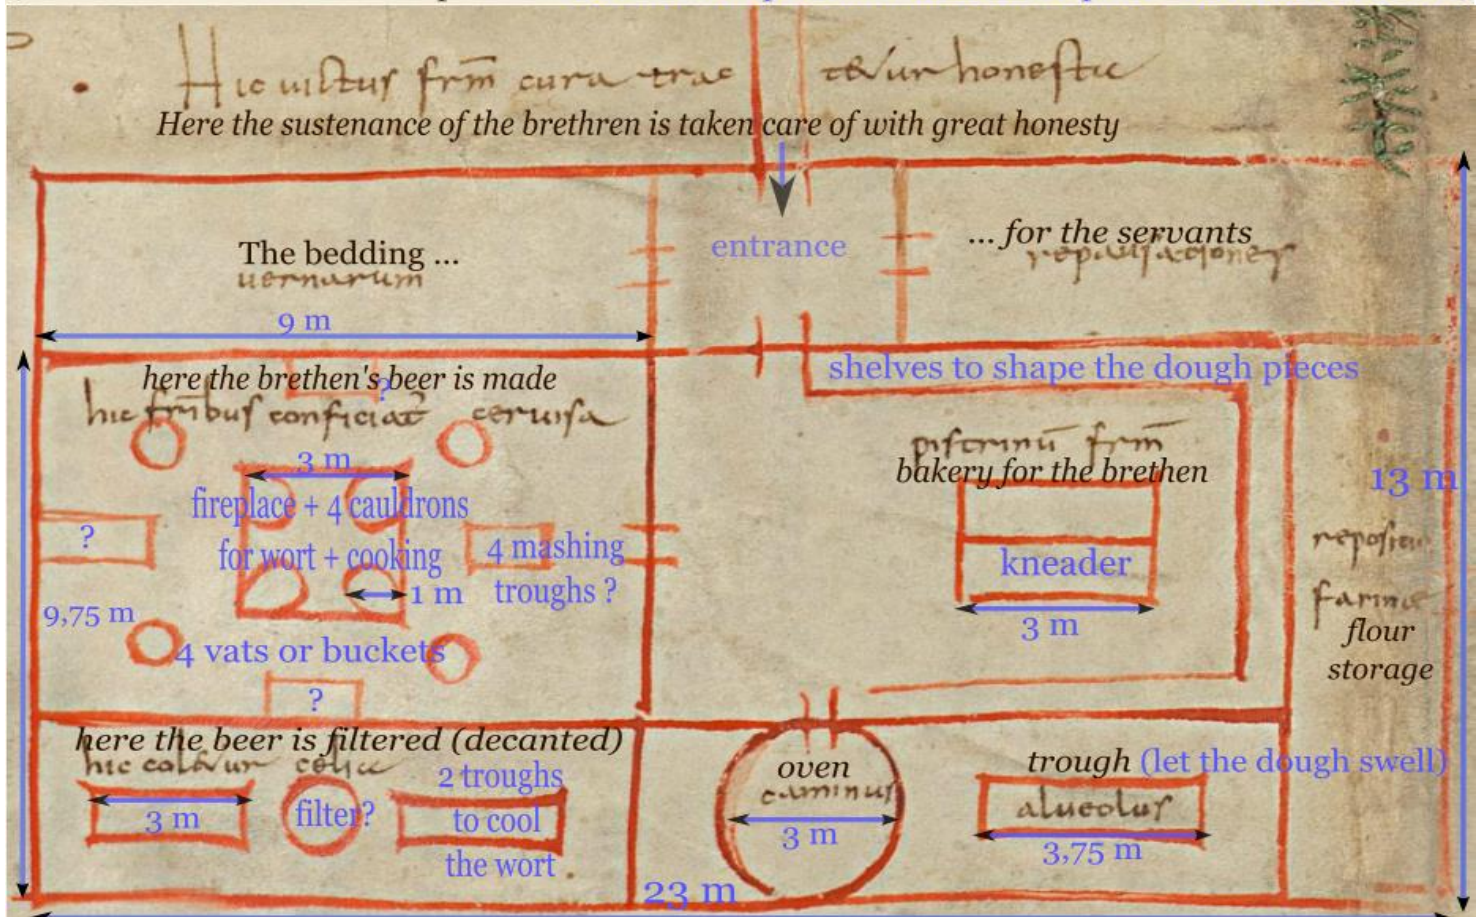 Hic victus frm cura trac tetur honeste
Here the sustenance of the brethren is taken care of with great honesty
entrance
The bedding ...
vernarum
... for the servants
repausationes
9 m
here the brethen's beer is made
?
hic fribus conficiat cervisa
shelves to shape the dough pieces
3 m
fireplace + 4 cauldrons
for wort + cooking
1 m
?
4 mashing
troughs ?
9,75 m
4 vats or buckets
?
pistrinu frm
bakery for the brethen
kneader
3 m
13 m
farine
flour
storage
here the beer is filtered (decanted)
hic colatur celia
3 m
filter?
2 troughs
to cool
the wort
oven
caminus
3 m
trough (let the dough swell)
alveolus
3,75 m
23 m